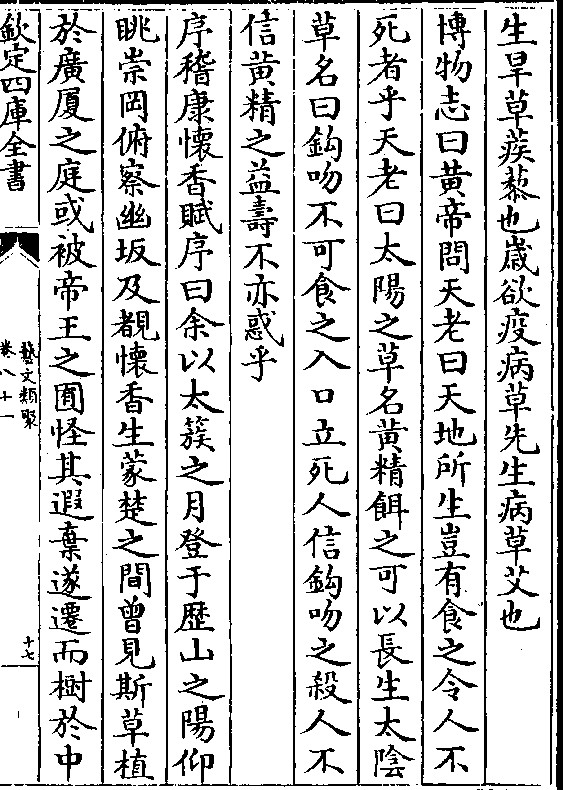 生旱草蒺藜也歲欲疫病草先生病草艾也
博物志曰黄帝問天老曰天地所生豈有食之令人不
死者乎天老曰太陽之草名黄精餌之可以長生太陰
草名曰鈎吻不可食之入口立死人信鈎吻之殺人不
信黄精之益壽不亦惑乎
序嵇康懷香賦序曰余以太簇之月登于歴山之陽仰
眺崇岡俯察幽坂及覩懷香生蒙楚之間曾見斯草植
於廣厦之庭或被帝王之囿怪其遐棄遂遷而樹於中
欽定四庫全書
藝文類聚
卷八十一
十七